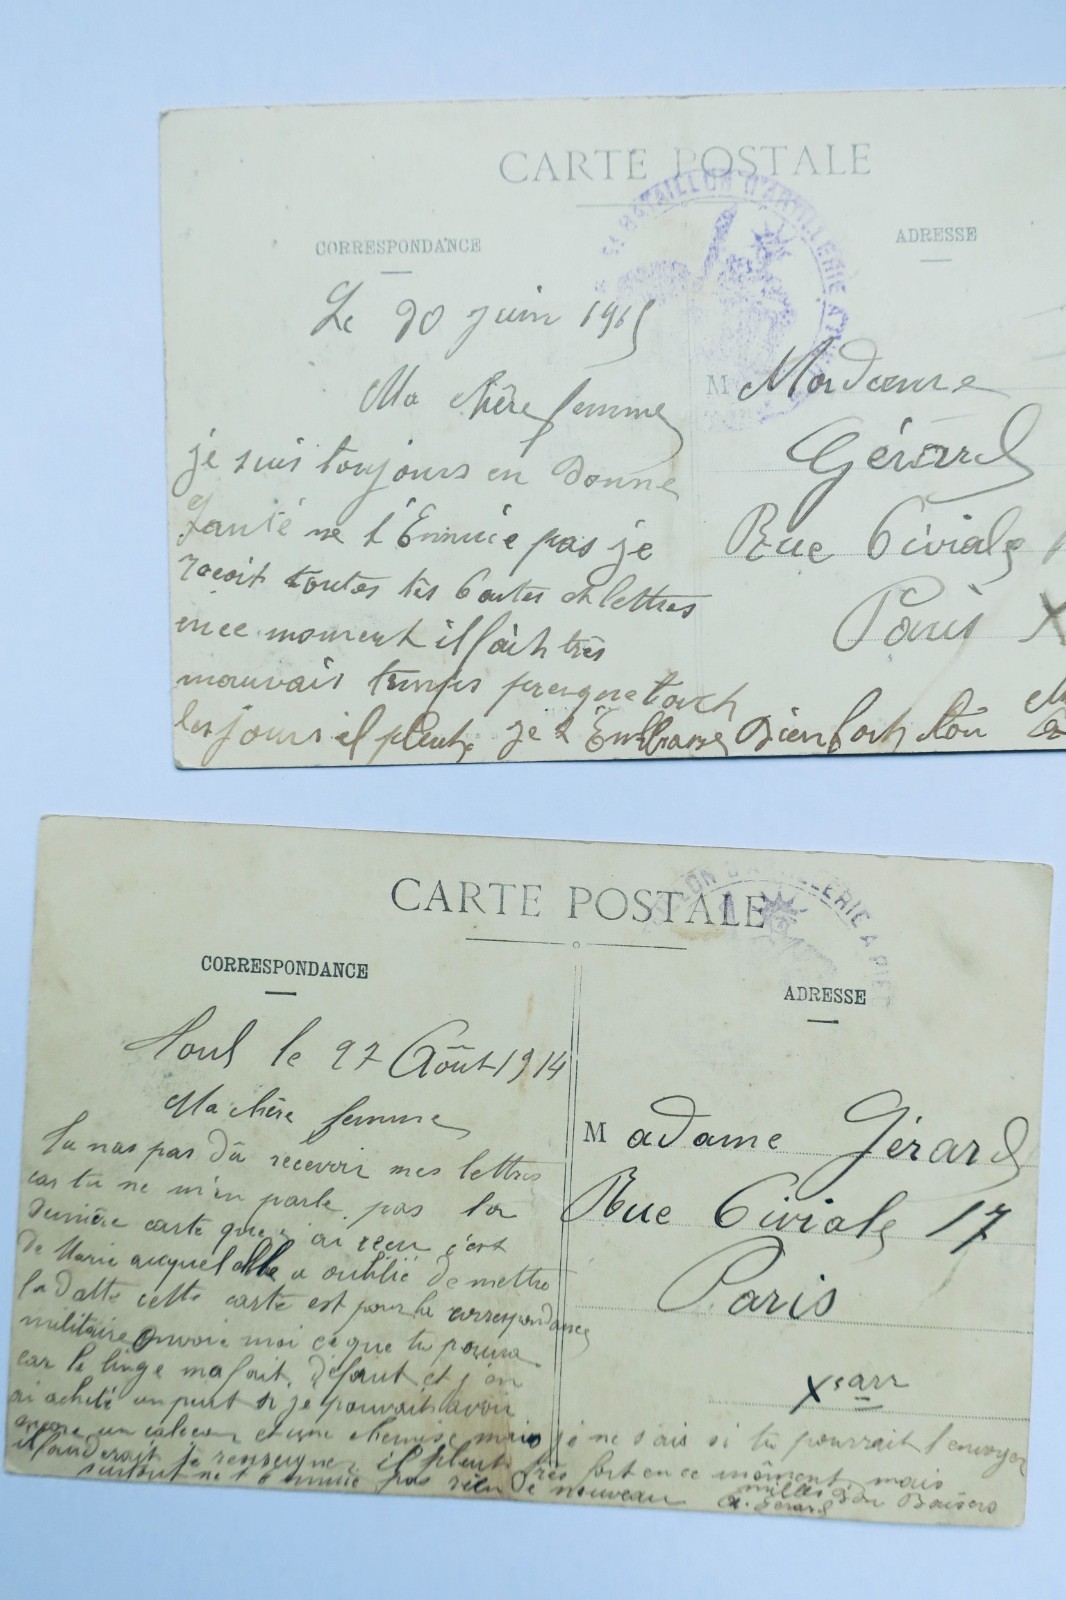 CARTE POSTALE
6e BATAILLON D'ARTILLERIE A
CORRESPONDANCE
ADRESSE
Le 20 juin 1915
Ma chère femme
je suis toujours en bonne
Santé ne t'Ennuie pas je
reçoit toutes tes Cartes et lettres
en ce moment il fait très
mauvais temps presque touch
les jours il pleut je t'Embrasse Bien fort ton
M Madame
Gérard
Rue Civiale
Paris X
CARTE POSTALE
D'ARTILLERIE A PIED
CORRESPONDANCE
ADRESSE
Toul le 27 Août 1914
Ma chère femme
tu nas pas dû recevoir mes lettres
car tu ne m'en parle pas la
dernière carte que j'ai reçu c'est
de Marie auquel elle a oublié de mettre
la datte cette carte est pour la correspondance
militaire envoie moi ce que tu pourra
car le linge ma fait défaut et j'en
ai acheté un peut si je pouvait avoir
encore un caleçon et une chemise mais je ne sais si tu pourrait l'envoyer
il faudrait te renseigner il pleut très fort en ce môment mais
surtout ne t'ennuie pas rien de nouveau milles Bon Baisers
A. Gérard
Madame Gérard
Rue Civiale 17
Paris
Xe arr